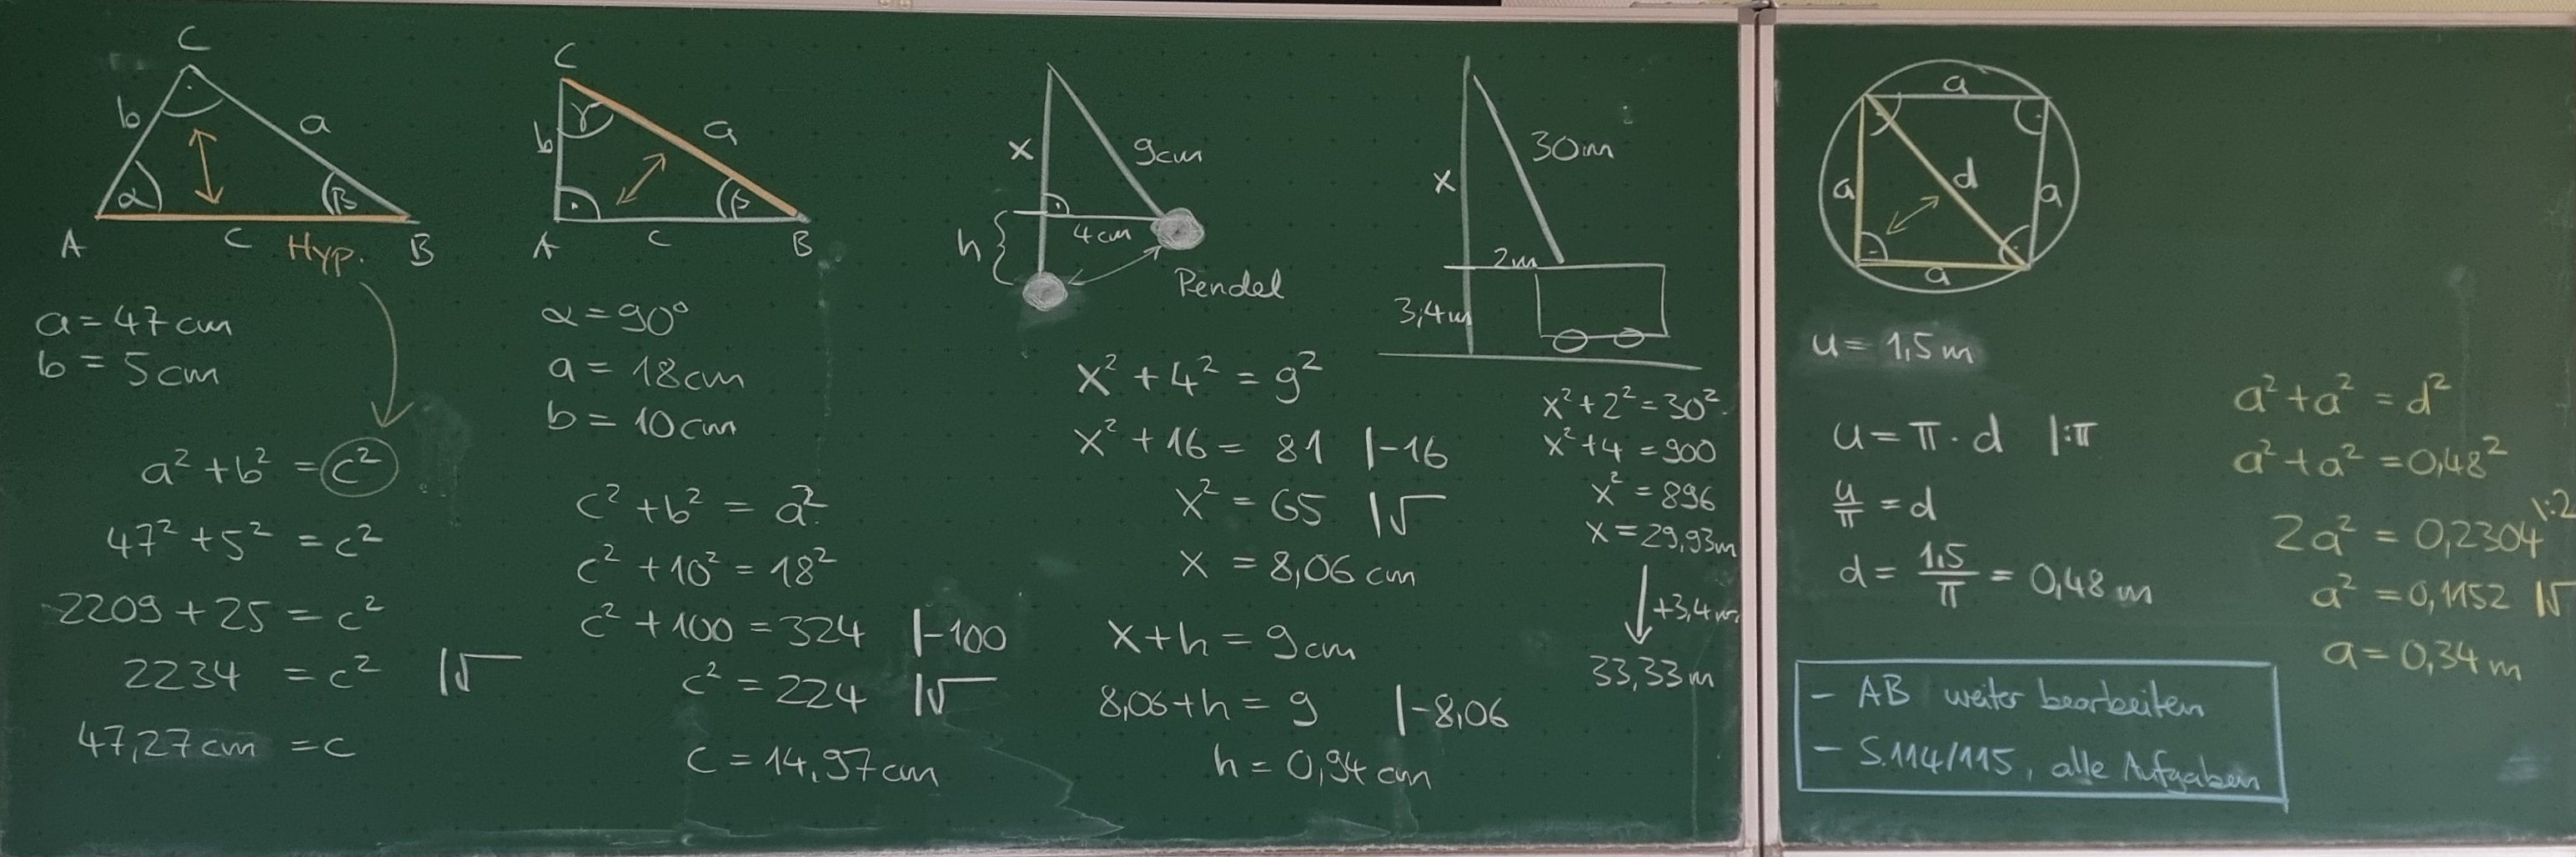 C
b
a
α
β
A
c
Hyp.
B
a = 47 cm
b = 5 cm
a² + b² = c²
47² + 5² = c²
2209 + 25 = c²
2234 = c² |√
47,27 cm = c
C
γ
b
a
β
A
c
B
α = 90°
a = 18 cm
b = 10 cm
c² + b² = a²
c² + 10² = 18²
c² + 100 = 324 |-100
c² = 224 |√
c = 14,97 cm
x
9 cm
4 cm
h
Pendel
x² + 4² = 9²
x² + 16 = 81 |-16
x² = 65 |√
x = 8,06 cm
x + h = 9 cm
8,06 + h = 9 |-8,06
h = 0,94 cm
30 m
x
2 m
3,4 m
x² + 2² = 30²
x² + 4 = 900
x² = 896
x = 29,93 m
+3,4 m
33,33 m
a
a
d
a
a
u = 1,5 m
u = π · d |:π
u/π = d
d = 1,5/π = 0,48 m
a² + a² = d²
a² + a² = 0,48²
2a² = 0,2304 |:2
a² = 0,1152 |√
a = 0,34 m
- AB weiter bearbeiten
- S.114/115, alle Aufgaben